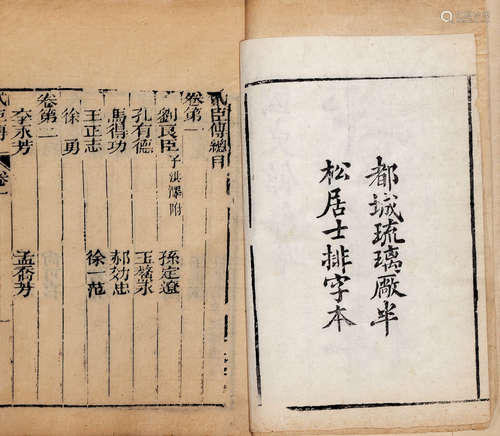 都城琉璃厰半
松居士排字本
貳臣傳總目
卷第一
劉良臣 子澤洪附 孫定遼
孔有德 王鰲永
馬得功 郝効忠
王正志 徐一范
徐勇
卷第二
李永芳 孟喬芳